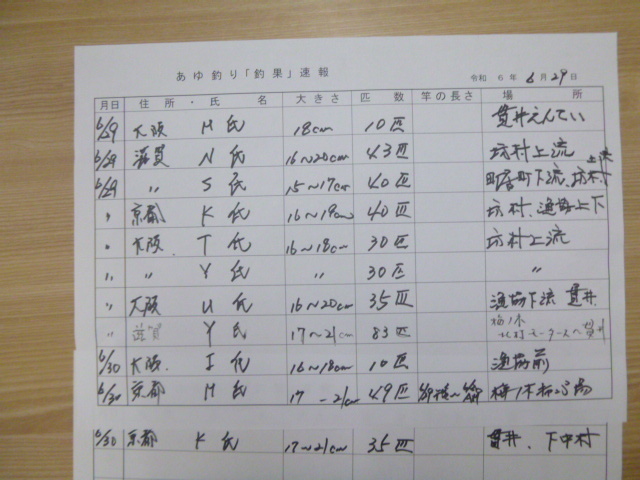 あゆ釣り「釣果」速報 令和 6 年 6 月 29 日
月日 住所・氏名 大きさ 匹数 竿の長さ 場所
6/29 大阪 M 氏 18cm 10匹 貫井えんてい
6/29 滋賀 N 氏 16~20cm 43匹 坊村上流
6/29 〃 S 氏 15~17cm 40匹 町居町下流、坊村上流
〃 京都 K 氏 16~19cm 40匹 坊村、漁協上下
〃 大阪 T 氏 16~18cm 30匹 坊村上流
〃 〃 Y 氏 〃 30匹 〃
〃 大阪 U 氏 16~20cm 35匹 漁協下流 貫井
〃 滋賀 Y 氏 17~21cm 83匹 梅ノ木
6/30 大阪 I 氏 16~18cm 10匹 漁協前
6/30 京都 M 氏 17-21cm 49匹 梅ノ木
6/30 京都 K 氏 17~21cm 35匹 貫井、下中村